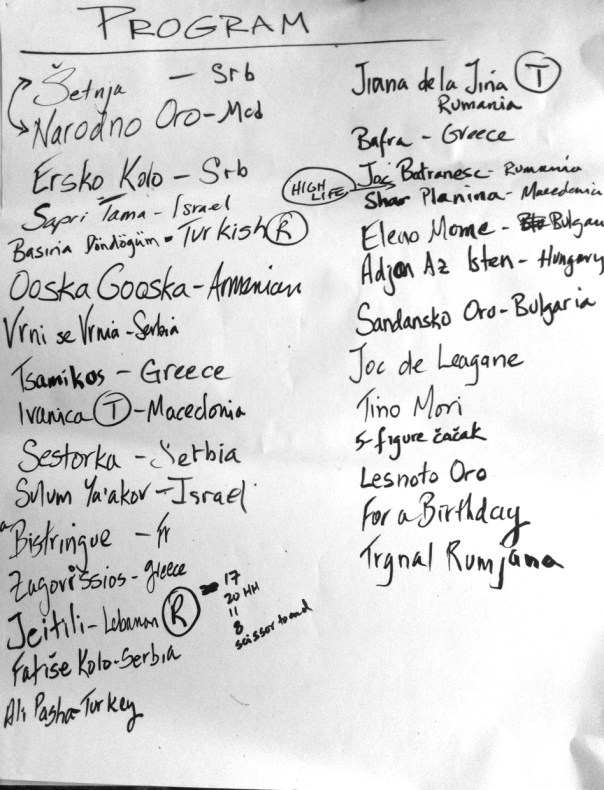 PROGRAM
Šetnja - Srb
Narodno Oro - Mcd
Ersko Kolo - Srb
Sapri Tama - Israel
Basiria Döndögüm - Turkish R
Ooska Gooska - Armenian
Vrni se Vrnia - Serbia
Tsamikos - Greece
Ivanica T - Macedonia
Sestorka - Serbia
Sulum Ya'akov - Israel
Bistringue - Fr
Zagorišsios - greece
Jeitili - Lebanon R - 17
20 HH
11
8
scissor to end
Fatiše Kolo - Serbia
Ali Pasha - Turkey
Jiana de la Jina T
Rumania
Bafra - Greece
HIGH LIFE Joc Batranesc - Rumania
Shar Planina - Macedonia
Eleno Mome - Bulgari
Adjon Az Isten - Hungary
Sandansko Oro - Bulgaria
Joc de Leagane
Tino Mori
5-figure čačak
Lesnoto Oro
For a Birthday
Trgnal Rumjana